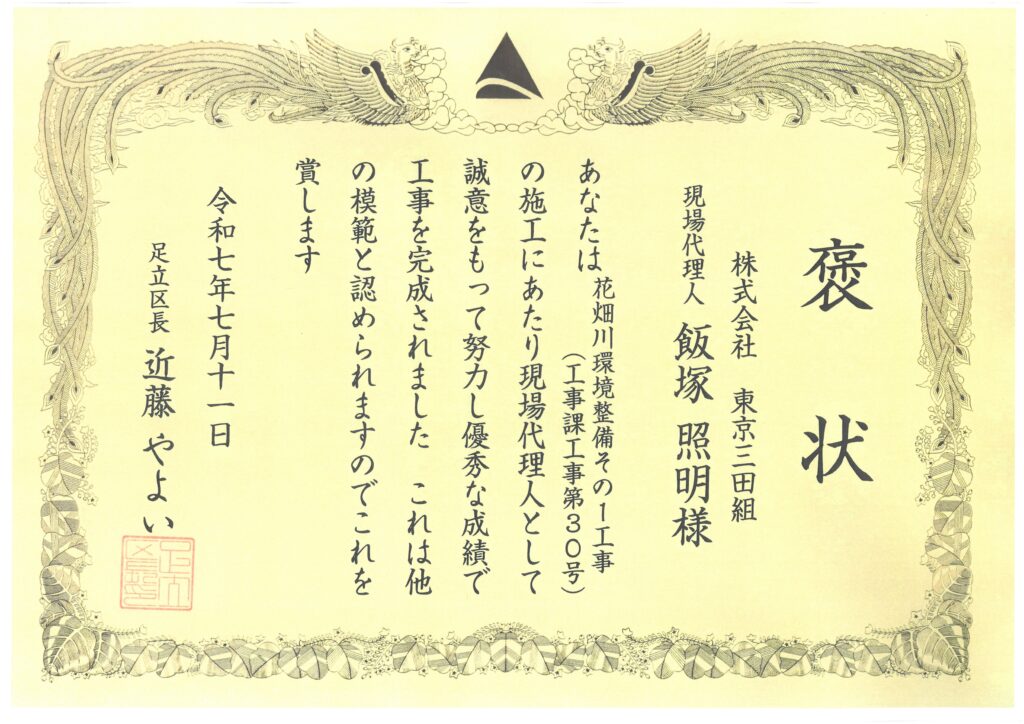 褒状
株式会社 東京三田組
現場代理人 飯塚 照明様
あなたは花畑川環境整備その1工事
(工事課工事第30号)
の施工にあたり現場代理人として
誠意をもって努力し優秀な成績で
工事を完成されました これは他
の模範と認められますのでこれを
賞します
令和七年七月十一日
足立区長 近藤 やよい